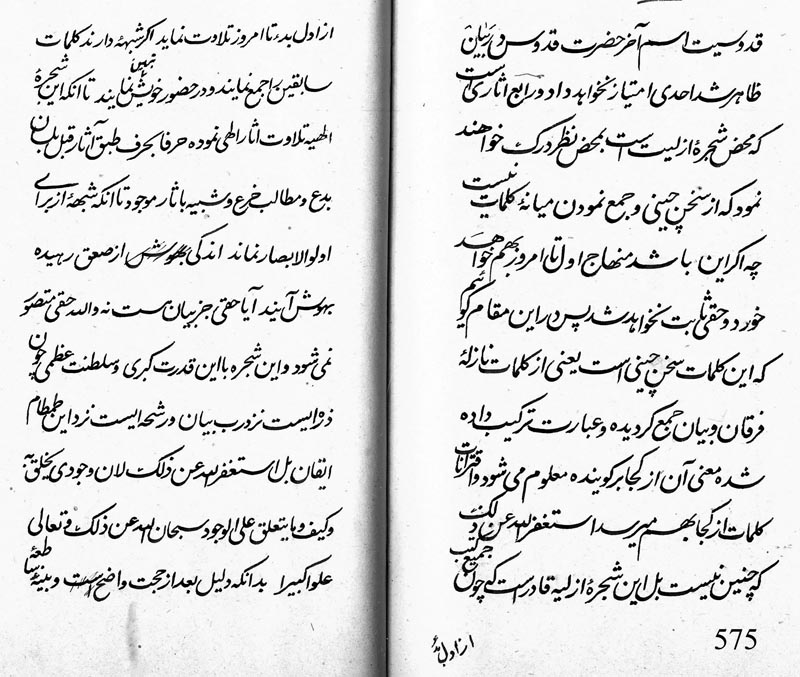 قدوسیت اسم آخر حضرت قدوس در بیان
ظاهر شد احدی امتیاز نخواهد داد و رابع اثاری است
که محض شجرهٔ ازلیت است بمحض نظر درک خواهند
نمود که از سخن چینی و جمع نمودن میانهٔ کلمات نیست
چه اگر این باشد منهاج اول تا امروز بهم خواهد
خورد و حقی ثابت نخواهد شد پس در این مقام گوئیم
که این کلمات سخن چینی است یعنی از کلمات نازلهٔ
فرقان و بیان جمع کردیده و عبارت ترکیب داده
شده معنی آن از کجا بر کوینده معلوم می شود و اقترانات
کلمات از کجا بهم میرسد استغفر الله عن ذلک
که چنین نیست بل این شجرهٔ ازلیه قادر است که چون جمیع کتب
از اول بدء
575
از اول بدء تا امروز تلاوت نماید اکر شبهه دارند کلمات
سابقین را جمع نمایند و در حضور خویش نهین نمایند تا انکه این شجرهٔ
الهیه تلاوت اثار الهی نموده حرفا بحرف طبق آثار قبل بلسان
بدع و مطالب خرع و شبیه باثار موجود تا انکه شبههٔ از برای
اولوالابصار نماند اندکی بهوش از صعق رهیده
بهوش آیند آیا حقی جز بیان هست نه والله حقی متصور
نمی شود و این شجره با این قدرت کبری و سلطنت عظمی چون
ذرهٔ ایست نزد رب بیان و رشحه ایست نزد این طمطام
ایقان بل استغفر الله عن ذلک لان وجودی یخلق به
و کیف و ما یتعلق علی الوجود سبحان الله عن ذلک و تعالی
علوا کبیرا بدانکه دلیل بعد از حجت واضح است و بینهٔ ساطعهٔ